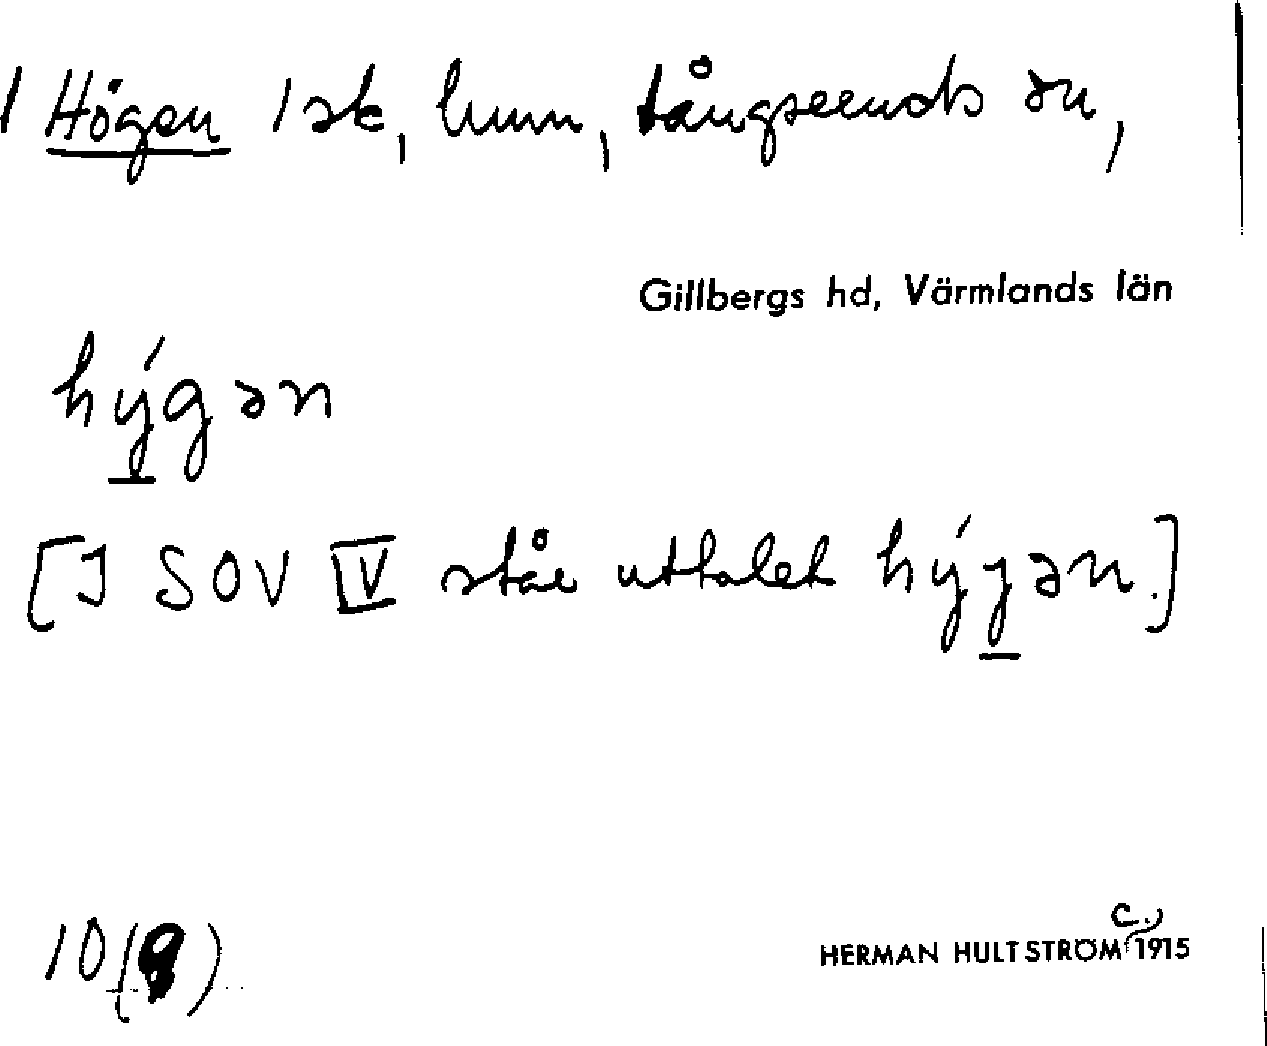 Högen 1 sk, hmn, Långserud sn,
Gillbergs hd, Värmlands län
hýgən
[I SOV IV står uttalet hýgən.]
10(9)
HERMAN HULTSTRÖM c. 1915